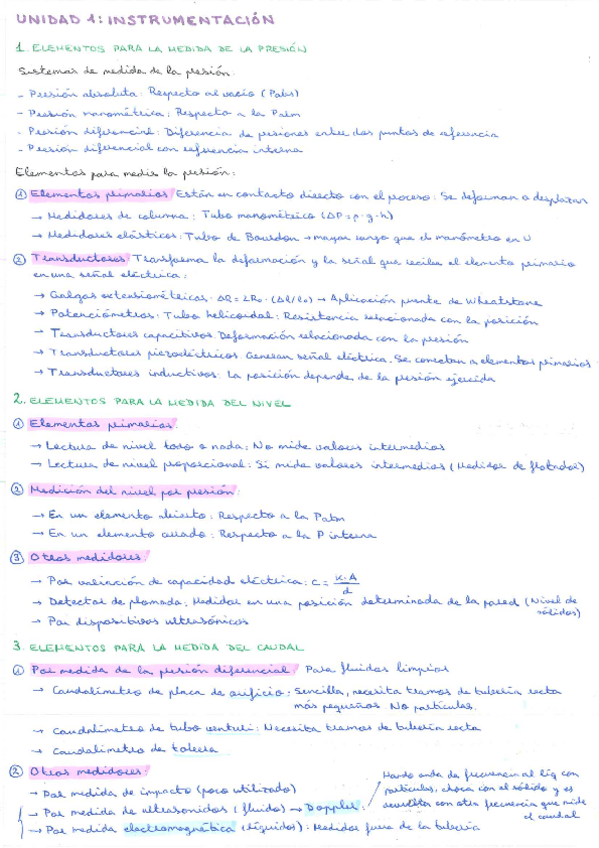 UNIDAD 1: INSTRUMENTACIÓN
1. ELEMENTOS PARA LA MEDIDA DE LA PRESIÓN
Sistemas de medida de la presión:
- Presión absoluta: Respecto al vacío (Pabs)
- Presión manométrica: Respecto a la Patm
- Presión diferencial: Diferencia de presiones entre dos puntos de referencia
- Presión diferencial con referencia interna
Elementos para medir la presión:
① Elementos primarios: Están en contacto directo con el proceso: Se deforman o desplazan
→ Medidores de columna: Tubo manométrico (ΔP=ρ·g·h)
→ Medidores elásticos: Tubo de Bourdon → mayor rango que el manómetro en U
② Transductores: Transforma la deformación y la señal que recibe el elemento primario
en una señal eléctrica:
→ Galgas extensiométricas: ΔR = 2R₀·(Δl/l₀) → Aplicación puente de Wheatstone
→ Potenciómetros: Tubo helicoidal: Resistencia relacionada con la posición
→ Transductores capacitivos: Deformación relacionada con la presión
→ Transductores piezoeléctricos: Generan señal eléctrica. Se conectan a elementos primarios
→ Transductores inductivos: La posición depende de la presión ejercida
2. ELEMENTOS PARA LA MEDIDA DEL NIVEL
① Elementos primarios:
→ Lectura de nivel todo o nada: No mide valores intermedios
→ Lectura de nivel proporcional: Si mide valores intermedios (Medidor de flotador)
② Medición del nivel por presión:
→ En un elemento abierto: Respecto a la Patm
→ En un elemento cerrado: Respecto a la P interna
③ Otros medidores:
→ Por variación de capacidad eléctrica: C = K·A/d
→ Detector de plomada: Medidor en una posición determinada de la pared (Nivel de
sólidos)
→ Por dispositivos ultrasónicos
3. ELEMENTOS PARA LA MEDIDA DEL CAUDAL
① Por medida de la presión diferencial: Para fluidos limpios
→ Caudalímetro de placa de orificio: Sencilla, necesita tramos de tubería recta
más pequeños. No partículas.
→ Caudalímetro de tubo venturi: Necesita tramos de tubería recta
→ Caudalímetro de tobera
② Otros medidores:
→ Por medida de impacto (poco utilizado)
→ Por medida de ultrasonidos (fluidos) → Doppler:
Manda onda de frecuencia al líq con
partículas, choca con el sólido y es
devuelta con otra frecuencia que mide
el caudal
→ Por medida electromagnética (líquidos): Medidor fuera de la tubería